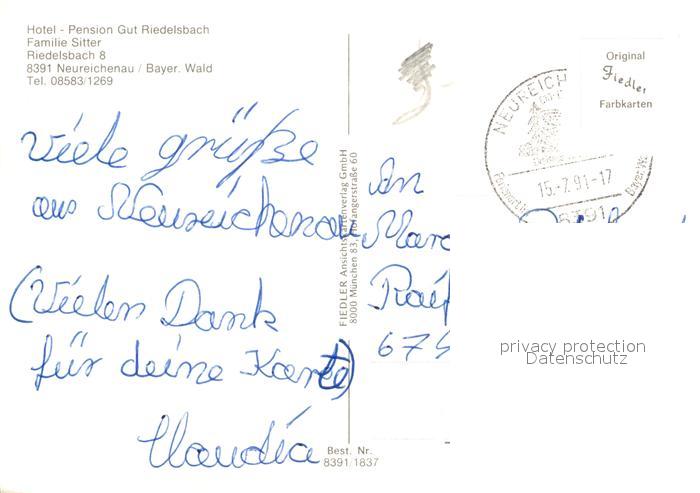 Hotel - Pension Gut Riedelsbach
Familie Sitter
Riedelsbach 8
8391 Neureichenau / Bayer. Wald
Tel. 08583/1269
Viele grüße
aus Neureichenau
(Vielen Dank
für deine Karte)
Claudia
FIEDLER Ansichtskartenverlag GmbH
8000 München 83,
Best. Nr.
8391/1837
An
Marc
Ralf
675
NEUREICH
15.-7.91-17
8391
Original
Fiedler
Farbkarten
privacy protection
Datenschutz